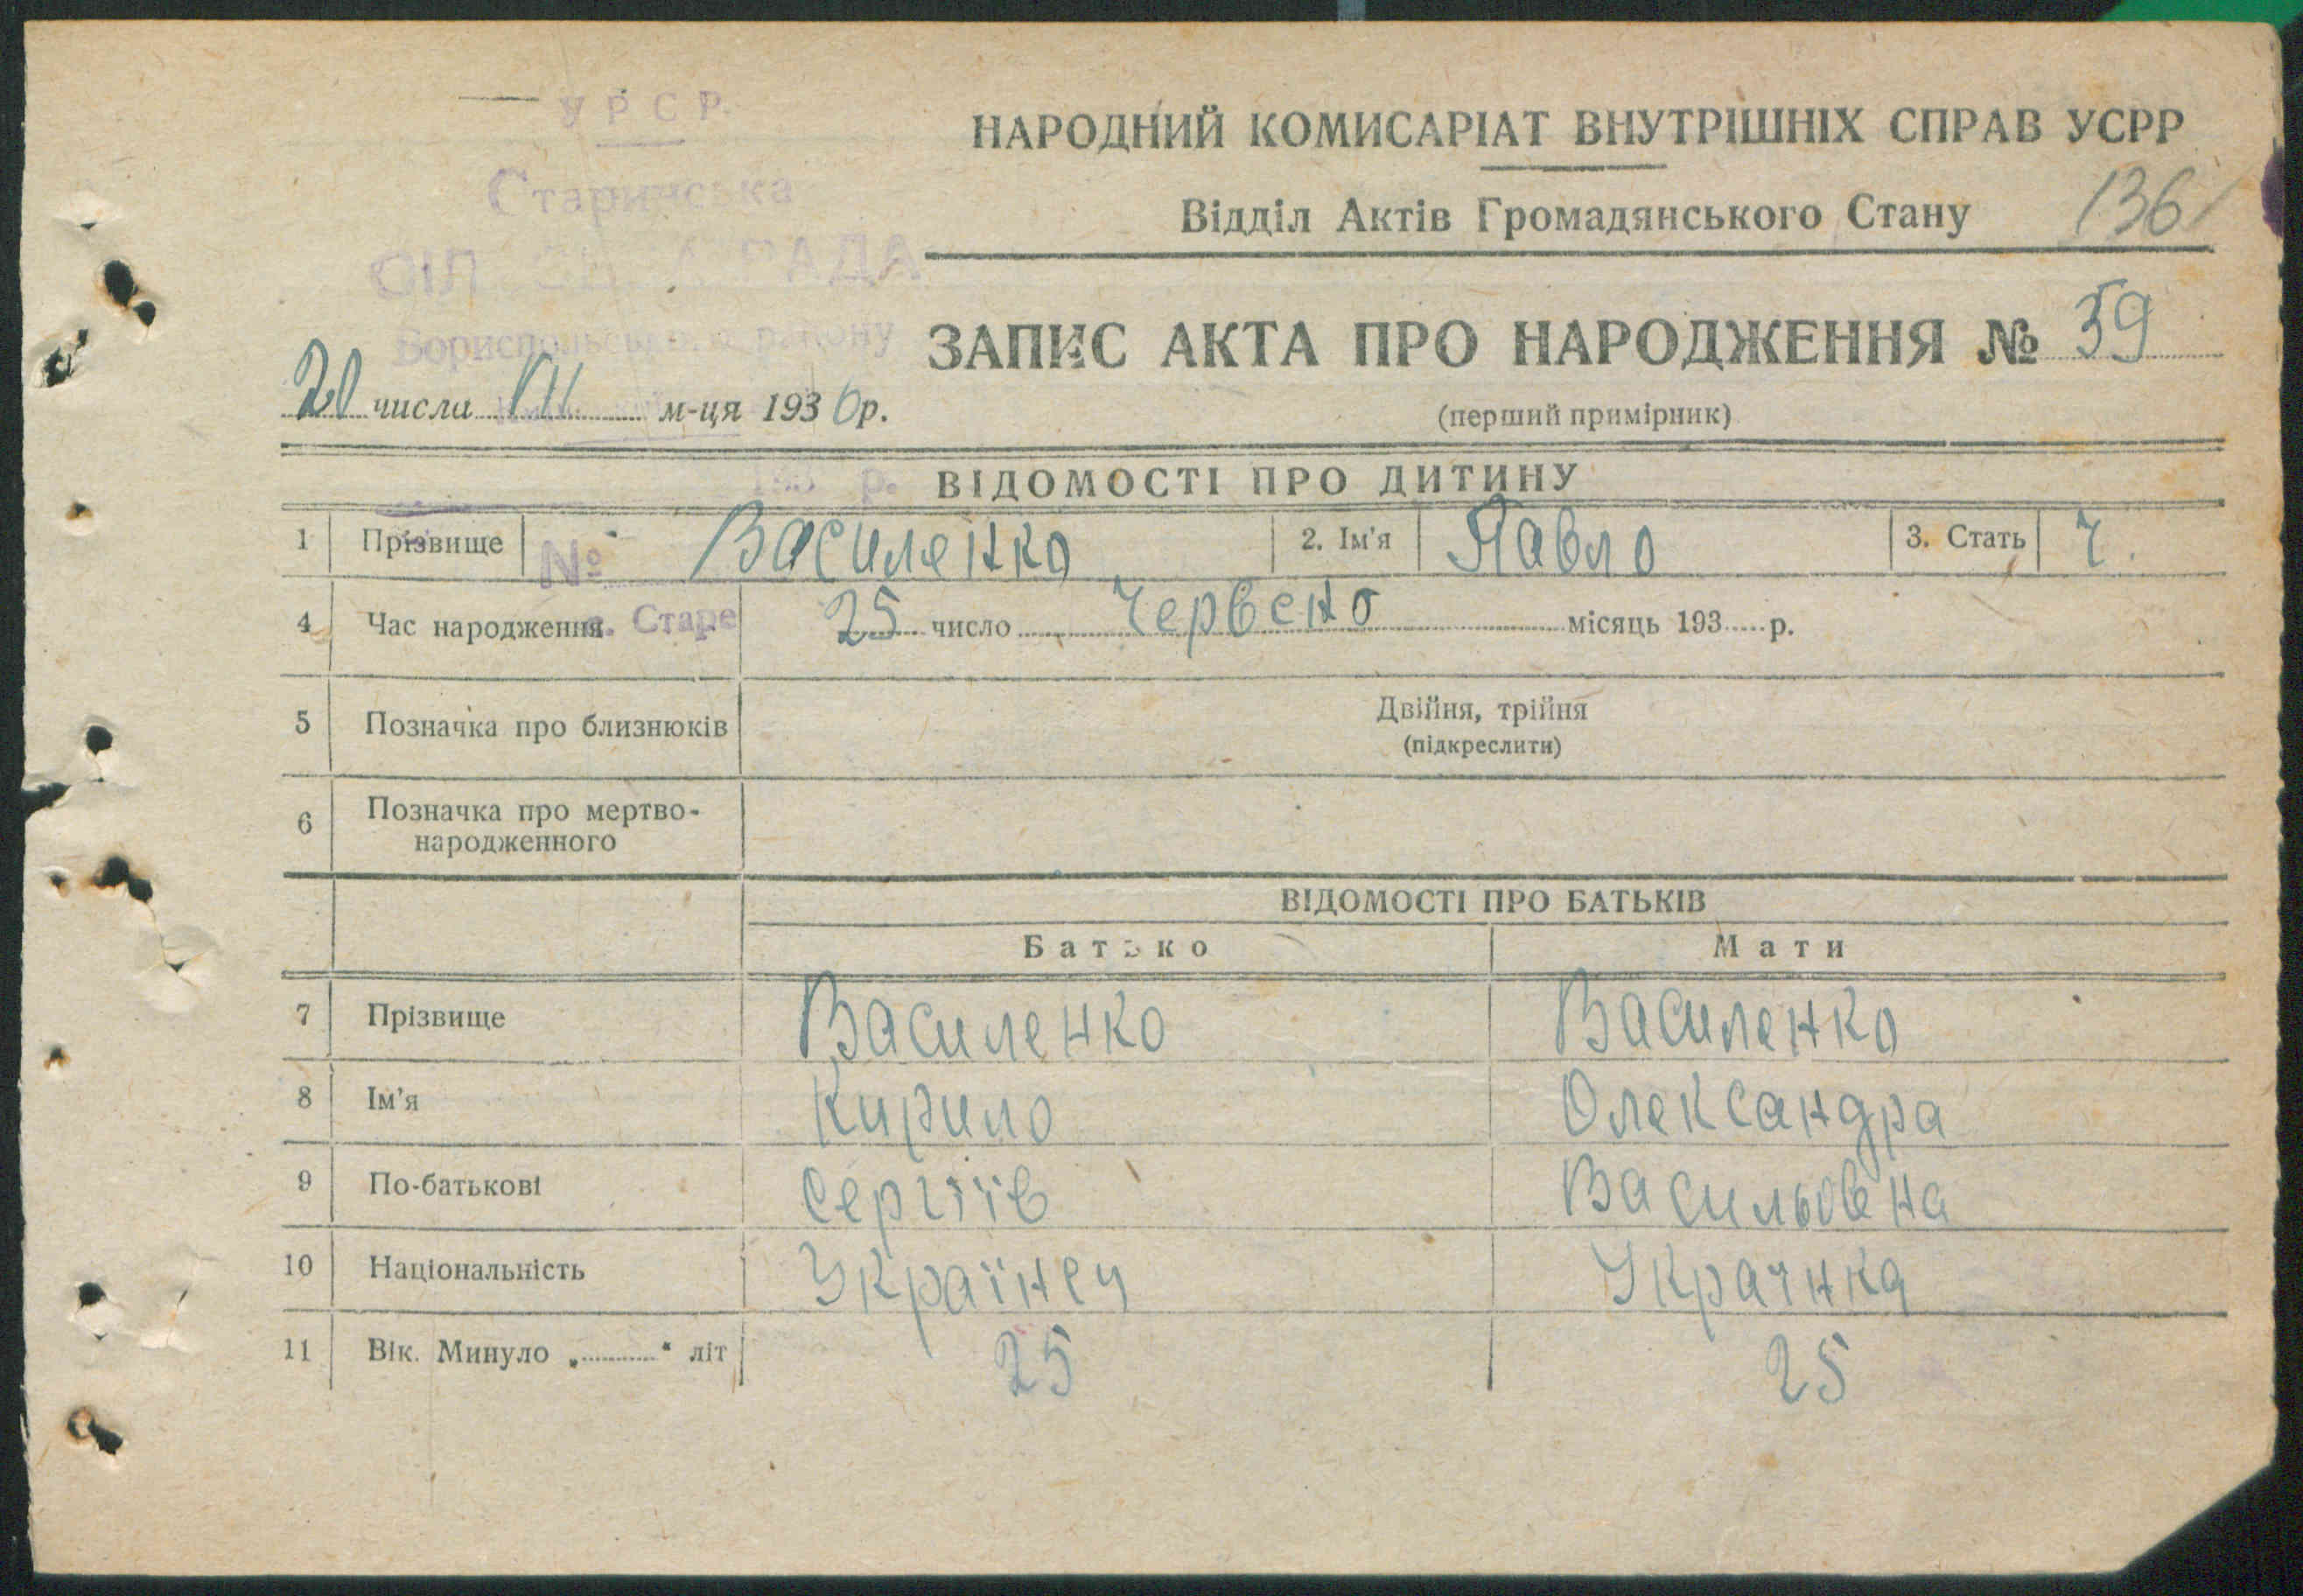 У Р С Р
НАРОДНИЙ КОМИСАРІАТ ВНУТРІШНІХ СПРАВ УСРР
Старинська
Відділ Актів Громадянського Стану 136
РАДА
Бориспольського району
ЗАПИС АКТА ПРО НАРОДЖЕННЯ № 59
20 числа м-ця 1936 р.
(перший примірник)
193 р.
ВІДОМОСТІ ПРО ДИТИНУ
1 Прізвище № Василенко 2. Ім'я Павло 3. Стать ч.
4 Час народження с. Старе 25 число червено місяць 193.....р.
5 Позначка про близнюків Двійня, трійня
(підкреслити)
6 Позначка про мертво-
народженного
ВІДОМОСТІ ПРО БАТЬКІВ
Батько Мати
7 Прізвище Василенко Василенко
8 Ім'я Кирило Олександра
9 По-батькові Сергіїв Васильовна
10 Національність Українец Украінка
11 Вік. Минуло „.........“ літ 25 25